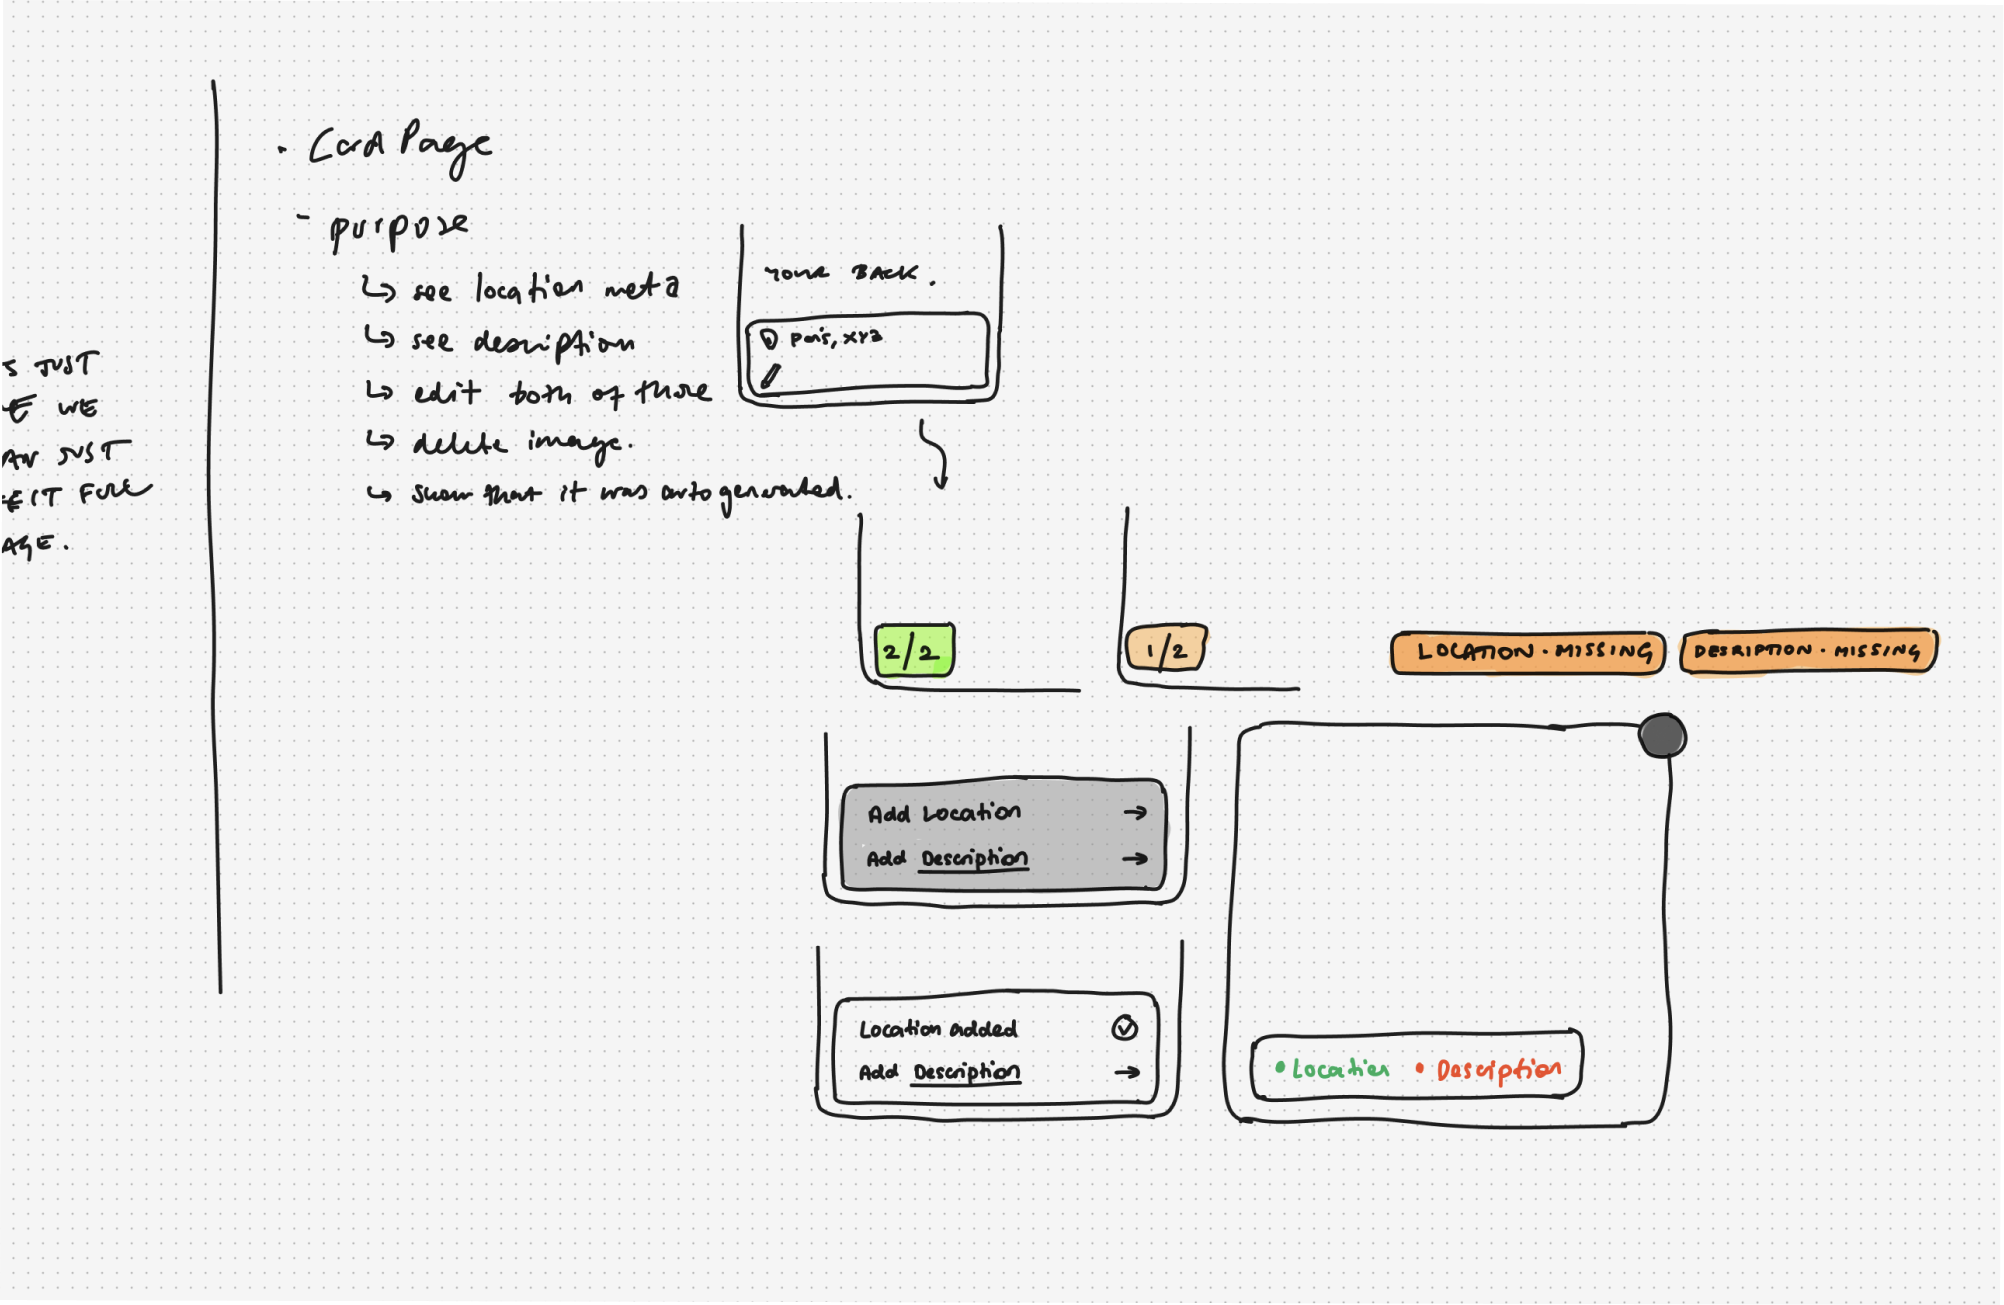 · Card Page
- purpose
↳ see location meta
↳ see description
↳ edit both of those
↳ delete image.
↳ show that it was autogenerated.
S JUST
WE
JUST
IT FULL
AGE.
YOUR BACK.
paris, xyz
2/2
1/2
LOCATION · MISSING
DESRIPTION · MISSING
Add Location →
Add Description →
Location added
Add Description →
• Location • Description